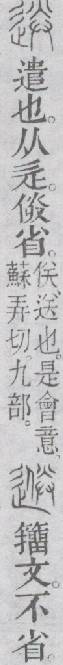 送 遣也。从辵。㑞省。
㑞、送也。是會意。
蘇弄切。九部。
籒文不省。